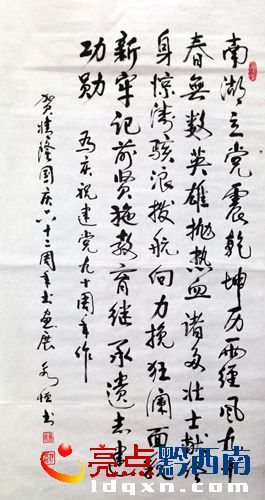 南湖立党震乾坤历雨经风九十
春无数英雄抛热血诸多壮士献
身惊涛骇浪拨航向力挽狂澜面貌
新牢记前贤施教育继承遗志建
功勋
为庆祝建党九十周年作
贺隆国庆六十二周年书画展 恒书
亮点黔西南
ldqxn.com